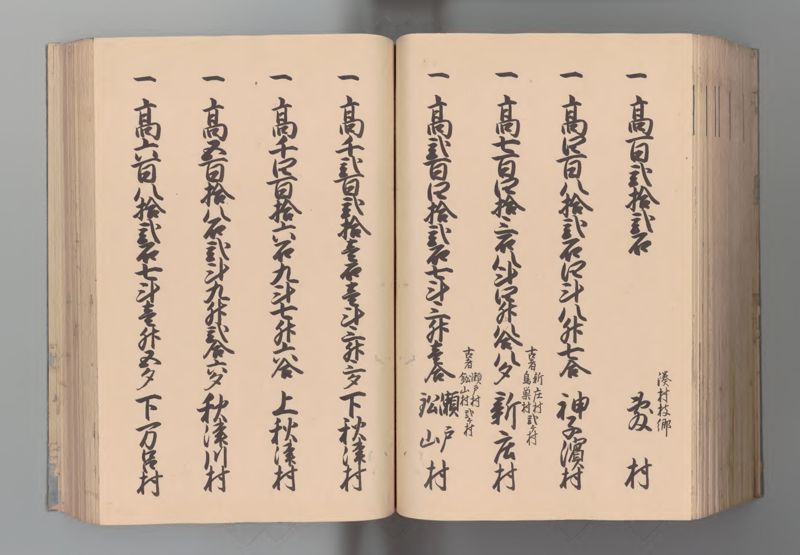 一 高百弐拾弐石
湊村枝郷
敷村
一 高四百八拾弐石四斗八升七合
神子濱村
一 高七百四拾三石八斗四升八合八夕
古者 新庄村
鳥巣村 弐ヶ村
新庄村
一 高弐百四拾弐石七斗三升壱合
古者 瀬戸村
鉛山村 弐ヶ村
瀬戸
鉛山村
一 高千弐百弐拾壱石壱斗三升三夕
下秋津村
一 高千四百拾六石九斗七升六合
上秋津村
一 高五百拾八石弐斗九升弐合六夕
秋津川村
一 高六百八拾弐石七斗壱升五夕
下万呂村